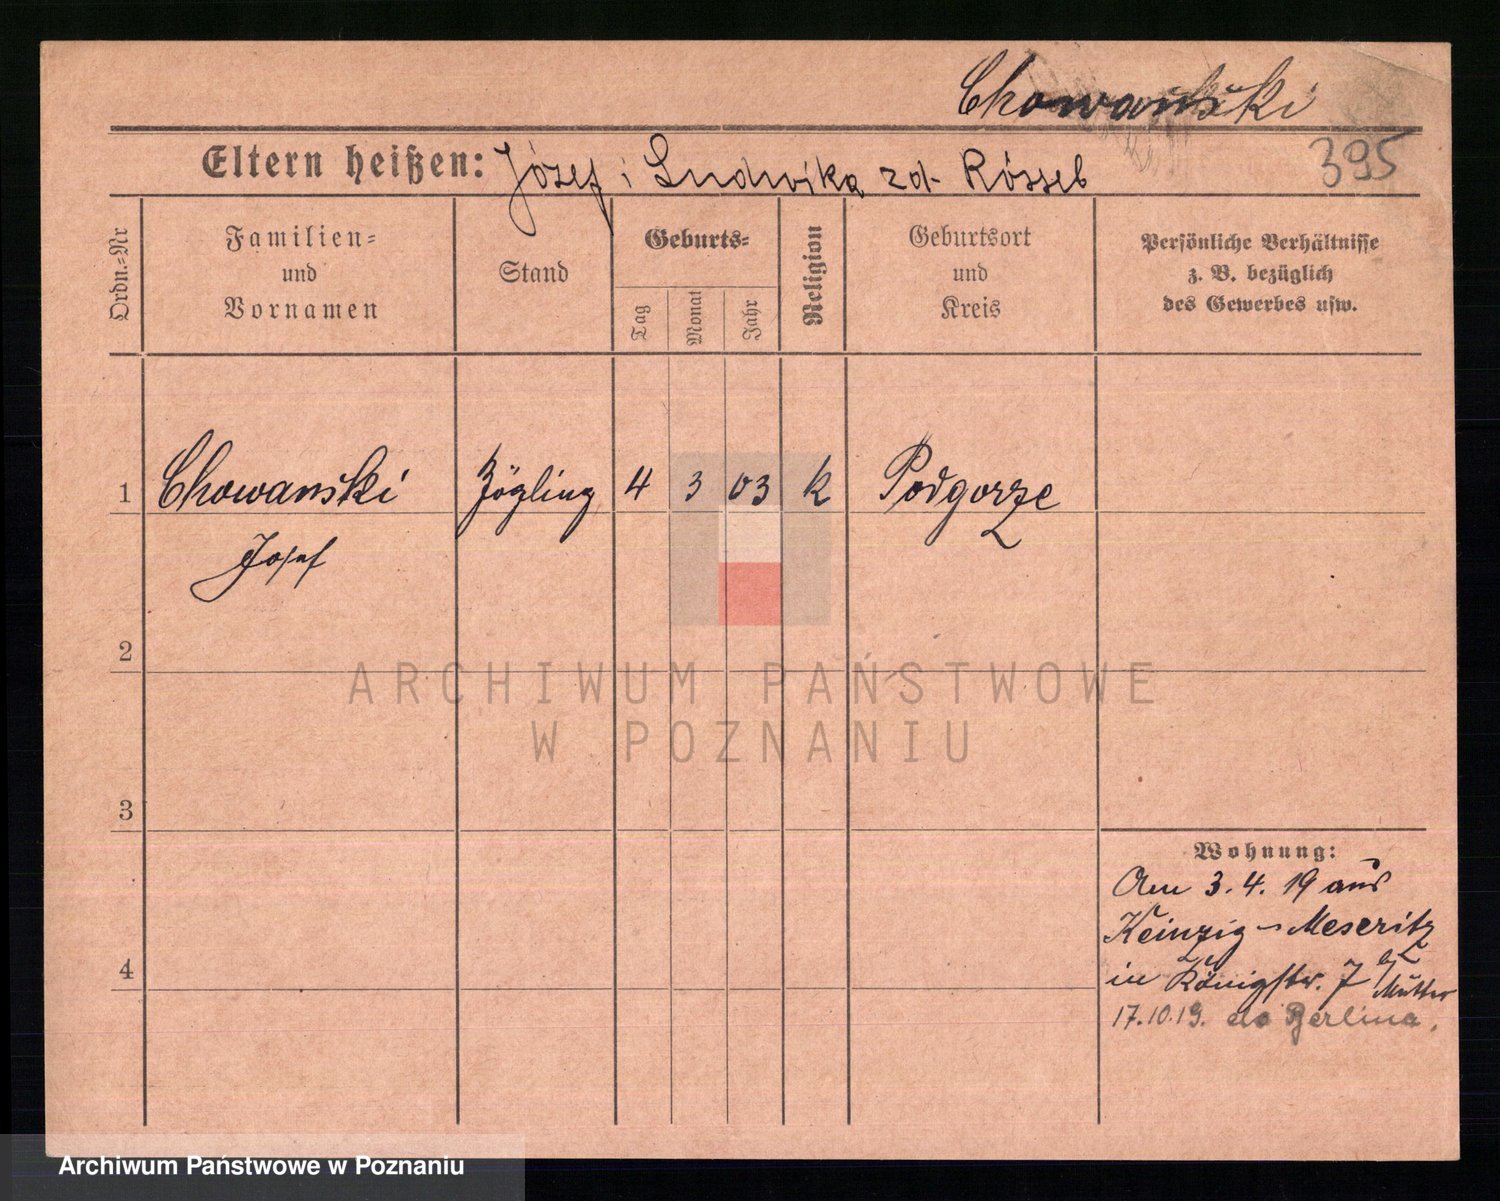 Chowański
Eltern heißen: Józef i Ludwika zd. Rössel
395
Ordn.=Nr
Familien=
und
Vornamen
Stand
Geburts=
Tag
Monat
Jahr
Religion
Geburtsort
und
Kreis
Persönliche Verhältnisse
z. B. bezüglich
des Gewerbes usw.
1 Chowański Zögling 4 3 03 k Podgorze
Josef
2
3
4
Wohnung:
Am 3.4.19 aus
Keinzig-Meseritz
in Königstr. 7 b/ Mutter
17.10.19. do Berlina.
ARCHIWUM PAŃSTWOWE
W POZNANIU
Archiwum Państwowe w Poznaniu